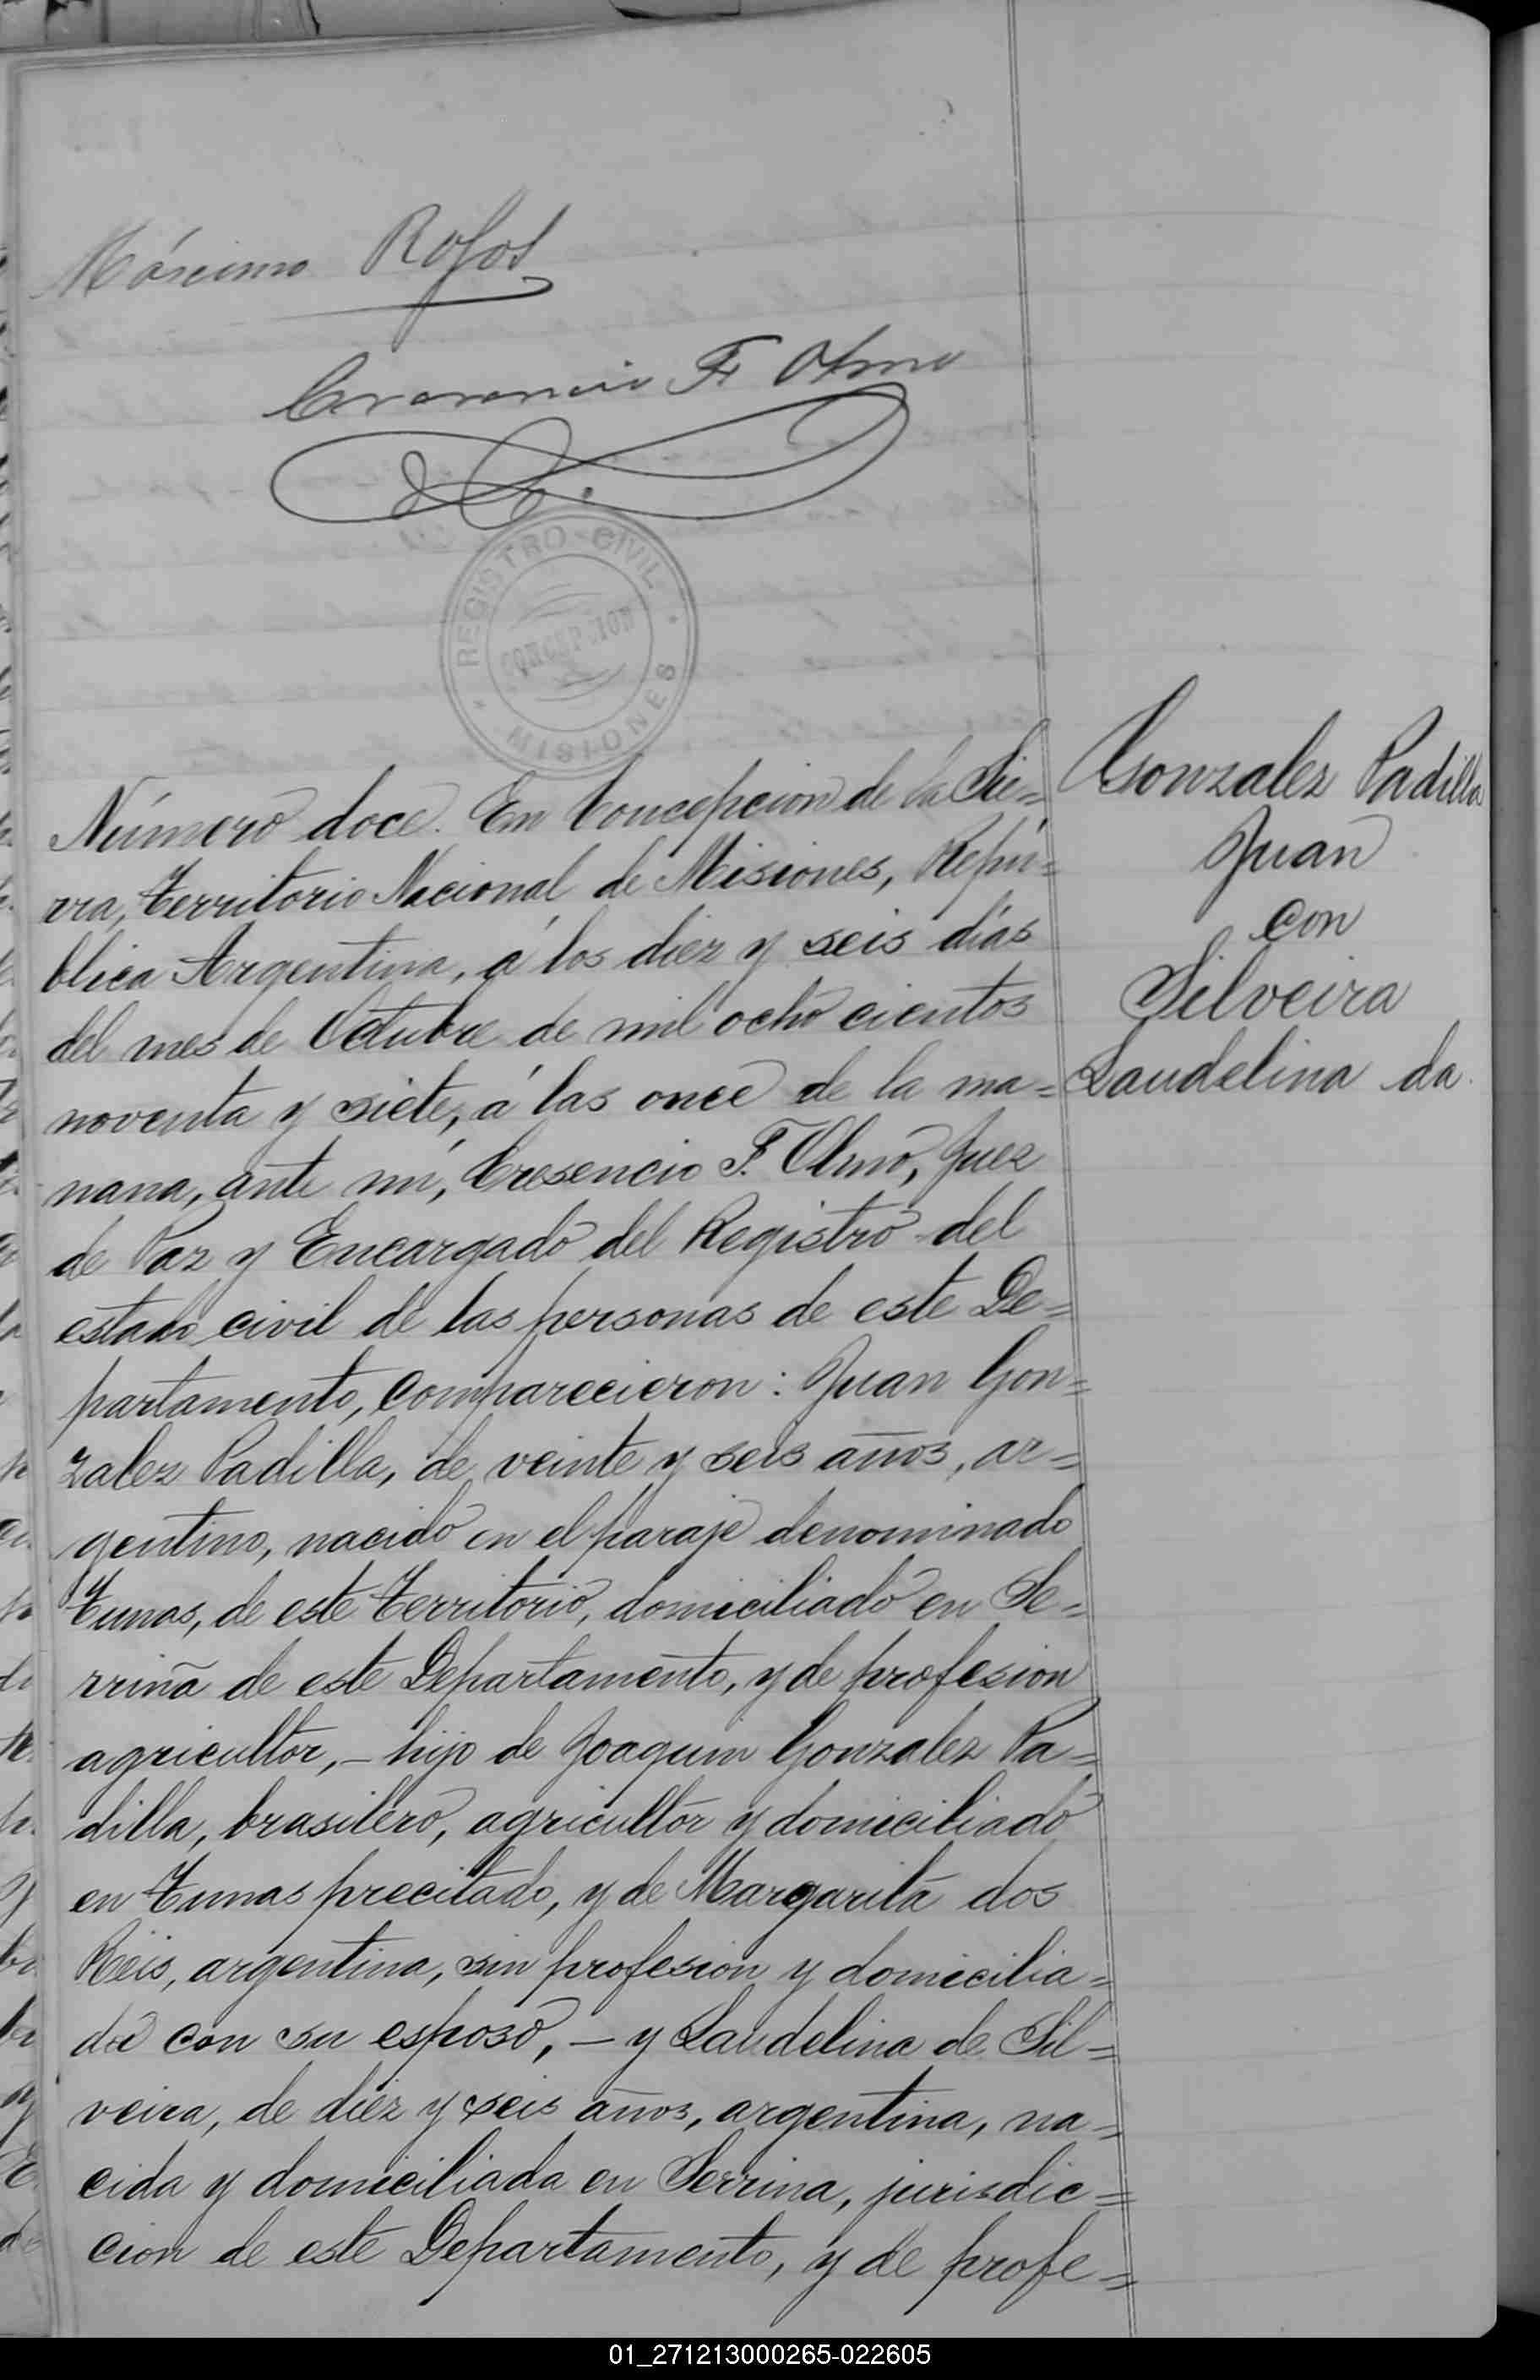 Máximo Rojas
Cresencio F. Olmo
REGISTRO CIVIL
CONCEPCION
MISIONES
Número doce. En Concepcion de la Sie=
rra, Territorio Nacional de Misiones, Repú=
blica Argentina, á los diez y seis días
del mes de Octubre de mil ocho cientos
noventa y siete, á las once de la ma=
nana, ante mí, Cresencio F. Olmo, Juez
de Paz y Encargado del Registro del
estado civil de las personas de este De=
partamento, comparecieron: Juan Gon=
zalez Padilla, de veinte y seis años, ar=
gentino, nacido en el paraje denominado
Tunas, de este Territorio, domiciliado en Se=
rriña de este Departamento, y de profesion
agricultor, – hijo de Joaquin Gonzalez Pa=
dilla, brasilero, agricultor y domiciliado
en Tunas precitado, y de Margarita dos
Reis, argentina, sin profesion y domicilia=
da con su esposo, – y Laudelina de Sil=
veira, de diez y seis años, argentina, na=
cida y domiciliada en Serrina, jurisdic=
cion de este Departamento, y de profe=
Gonzalez Padilla
Juan
con
Silveira
Laudelina da.
01_271213000265-022605